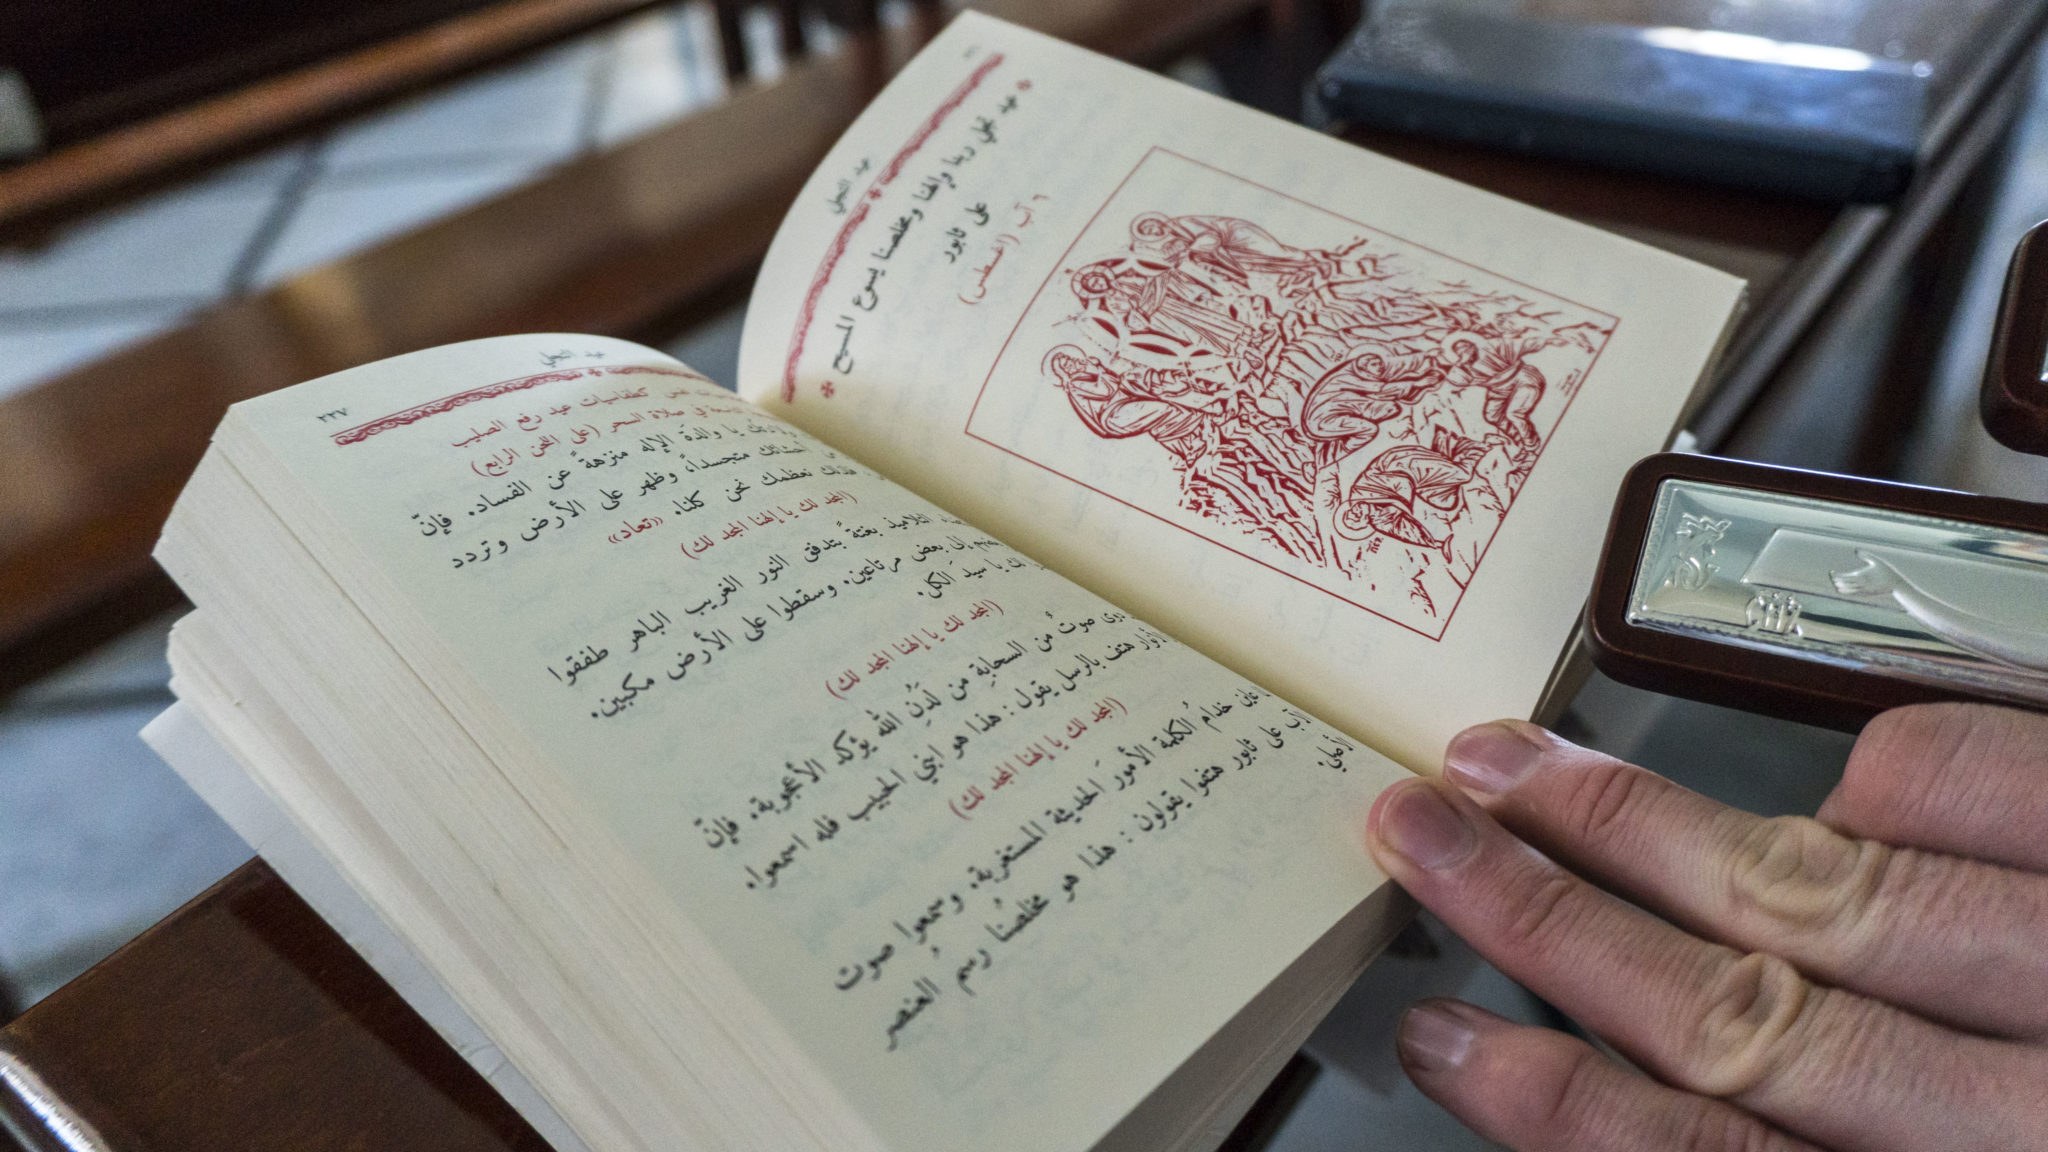 عيد التجلي
عيد تجلي ربنا وإلهنا ومخلصنا يسوع المسيح
على ثابور
٦ آب (اغسطس)
عيد التجلي
٢٢٧
كطقاسيات عيد رفع الصليب
في صلاة السحر (على اللحن الرابع)
يا والدة الإله منزهةً عن الفساد. فإنّ
متجسداً، وظهر على الأرض وتردد
نعظمك نحن كلنا. «تعاد»
(المجد لك يا إلهنا المجد لك)
التلاميذ بغتةً بتدفق النور الغريب الباهر طفقوا
إلى بعض مرتاعين. وسقطوا على الأرض مكبين.
يا سيد الكل.
(المجد لك يا إلهنا المجد لك)
صوتٌ من السحابةِ من لَدُنِ الله يؤكد الأعجوبة. فإنّ
هتف بالرسل يقول: هذا هو ابني الحبيب فله اسمعوا.
(المجد لك يا إلهنا المجد لك)
خدامُ الكلمة الأمورَ الحديثة المستغربة. وسمعوا صوت
على ثابور هتفوا يقولون: هذا هو مخلصُنا رسمُ العنصر